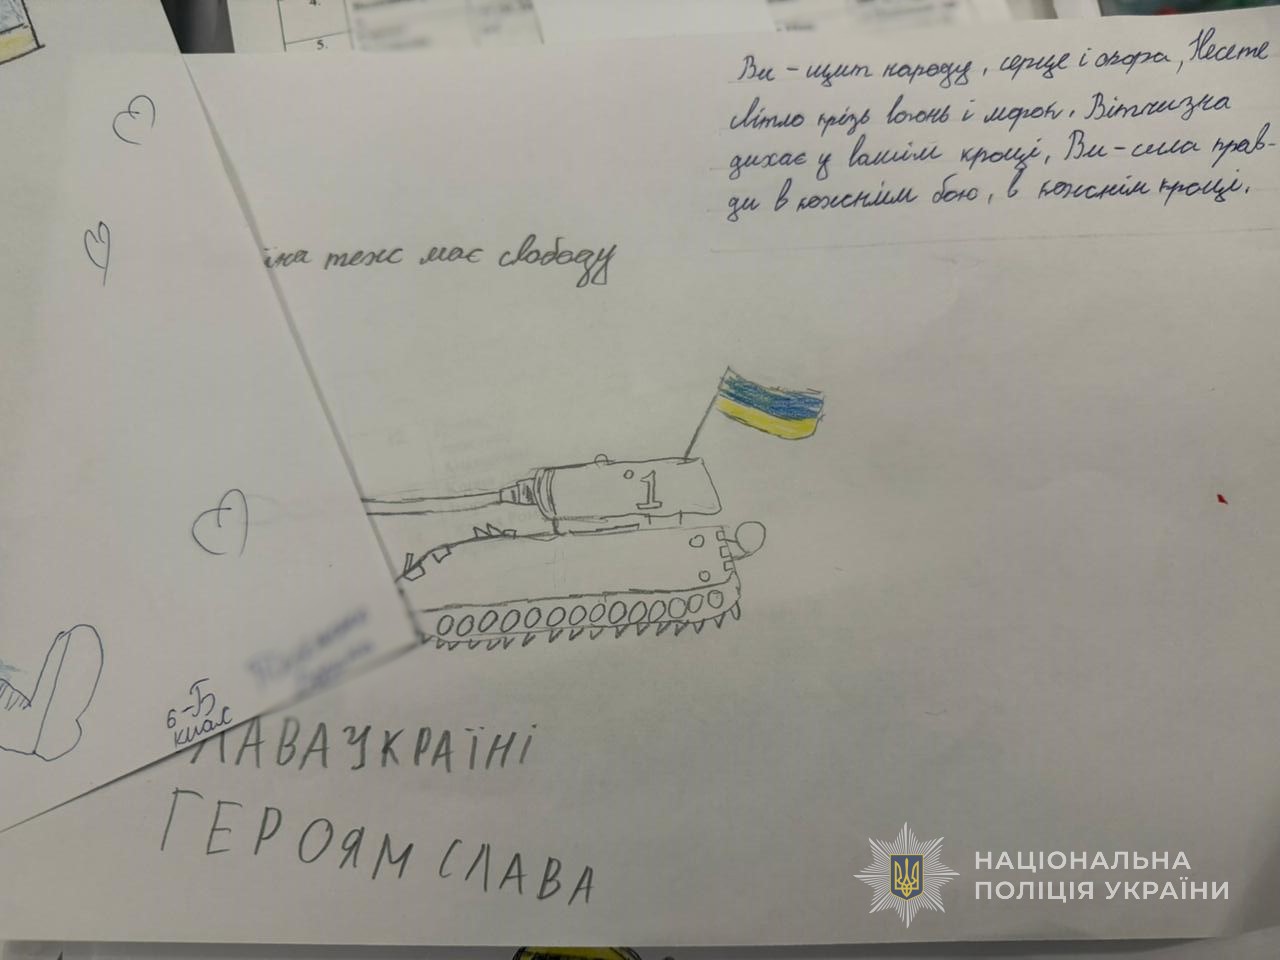 4.
5.
Ви - щит народу, серце і опора, Несете
світло крізь вогонь і морок. Вітчизна
дихає у вашім кроці, Ви - сила прав-
ди в кожнім бою, в кожнім кроці.
їна теж має свободу
1
6-Б
клас
ЛАВА УКРАЇНІ
ГЕРОЯМ СЛАВА
НАЦІОНАЛЬНА
ПОЛІЦІЯ УКРАЇНИ